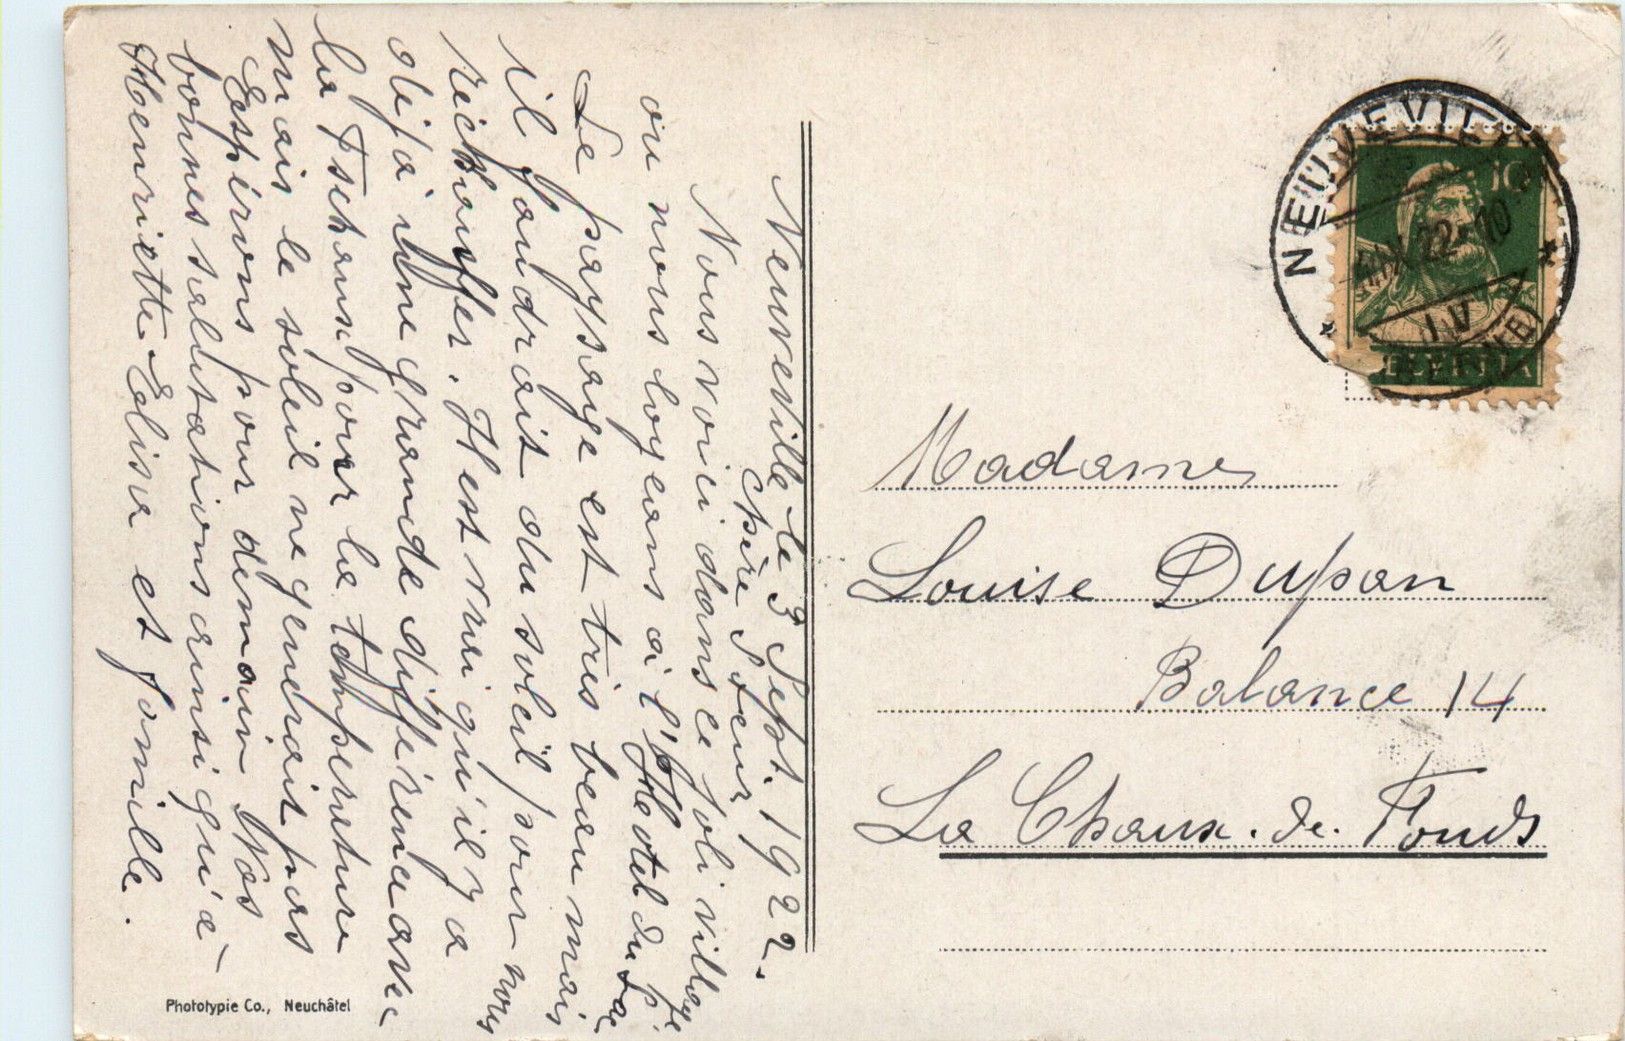 Neuveville le 3 Sept. 1922.
Chère Sœur
Nous voici dans ce joli village
où nous logeons à l'Hôtel du Lac
Le paysage est très beau mais
il faudrait du soleil pour nous
réchauffer. Il est vrai qu'il y a
déjà une grande différence avec
la Tschaux pour la température
mais le soleil ne gendrait pas
Espérons pour demain Nos
bonnes salutations ainsi qu'à
Henriette Elisa et famille.
Phototypie Co., Neuchâtel
NEUVEVILLE
22-10
(BERNE)
10
HELVETIA
Madame
Louise Dupan
Balance 14
La Chaux-de-Fonds